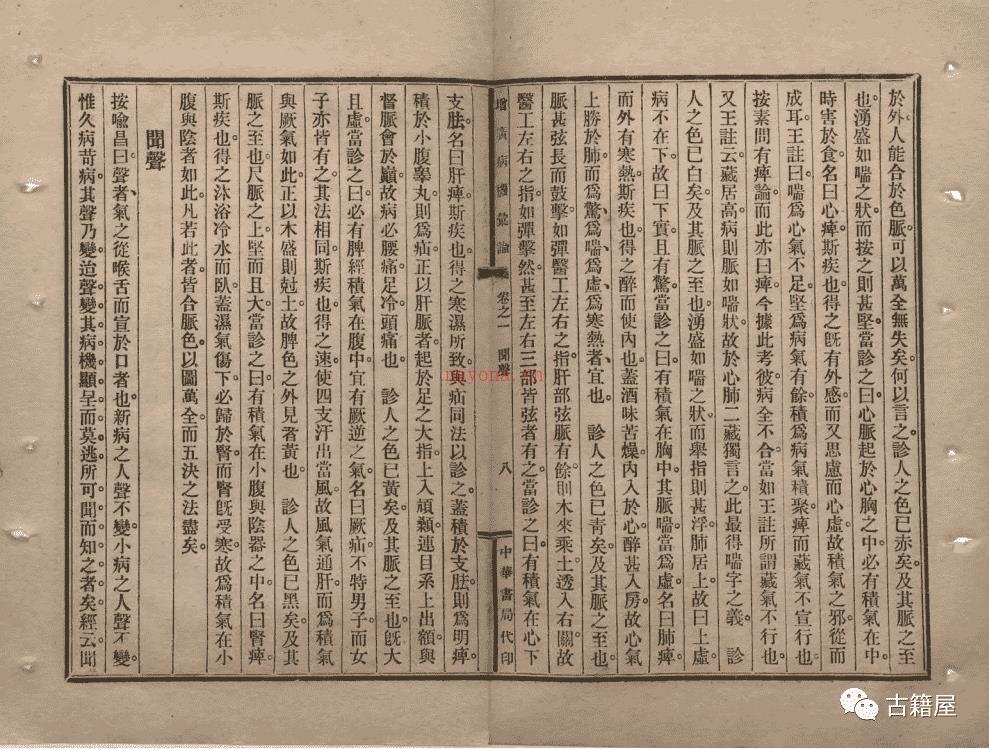 於外人能合於色脈可以萬全無失矣何以言之診人之色已赤矣及其脈之至
也湧盛如喘之狀而按之則甚堅當診之曰心脈起於心胸之中必有積氣在中
時害於食名曰心痺斯疾也得之旣有外感而又思慮而心虛故積氣之邪從而
成耳王註曰喘爲心氣不足堅爲病氣有餘積爲病氣積聚痺而藏氣不宣行也
按素問有痺論而此亦曰痺今據此考彼病全不合當如王註所謂藏氣不行也
又王註云藏居高病則脈如喘狀故於心肺二藏獨言之此最得喘字之義　診
人之色已白矣及其脈之至也湧盛如喘之狀而舉指則甚浮肺居上故曰上虛
病不在下故曰下實且有驚當診之曰有積氣在胸中其脈喘當爲虛名曰肺痺
而外有寒熱斯疾也得之醉而使內也蓋酒味苦燥內入於心醉甚入房故心氣
上勝於肺而爲驚爲喘爲虛爲寒熱者宜也　診人之色已靑矣及其脈之至也
脈甚弦長而鼓擊如彈醫工左右之指肝部弦脈有餘則木來乘土透入右關故
醫工左右之指如彈擊然甚至左右三部皆弦者有之當診之曰有積氣在心下
增廣病機彙論
卷之一　聞聲
八
中華書局代印
支胠名曰肝痺斯疾也得之寒濕所致與疝同法以診之蓋積於支胠則爲明痺
積於小腹睾丸則爲疝正以肝脈者起於足之大指上入頏顙連目系上出額與
督脈會於巓故病必腰痛足冷頭痛也　診人之色已黃矣及其脈之至也旣大
且虛當診之曰必有脾經積氣在腹中宜有厥逆之氣名曰厥疝不特男子而女
子亦皆有之其法相同斯疾也得之速使四支汗出當風故風氣通肝而爲積氣
與厥氣如此正以木盛則尅土故脾色之外見者黃也　診人之色已黑矣及其
脈之至也尺脈之上堅而且大當診之曰有積氣在小腹與陰器之中名曰腎痺
斯疾也得之沐浴冷水而臥蓋濕氣傷下必歸於腎而腎旣受寒故爲積氣在小
腹與陰者如此凡若此者皆合脈色以圖萬全而五決之法盡矣
聞聲
按喻昌曰聲者氣之從喉舌而宣於口者也新病之人聲不變小病之人聲不變
惟久病苛病其聲乃變迨聲變其病機顯呈而莫逃所可聞而知之者矣經云聞
nayona.cn
古籍屋